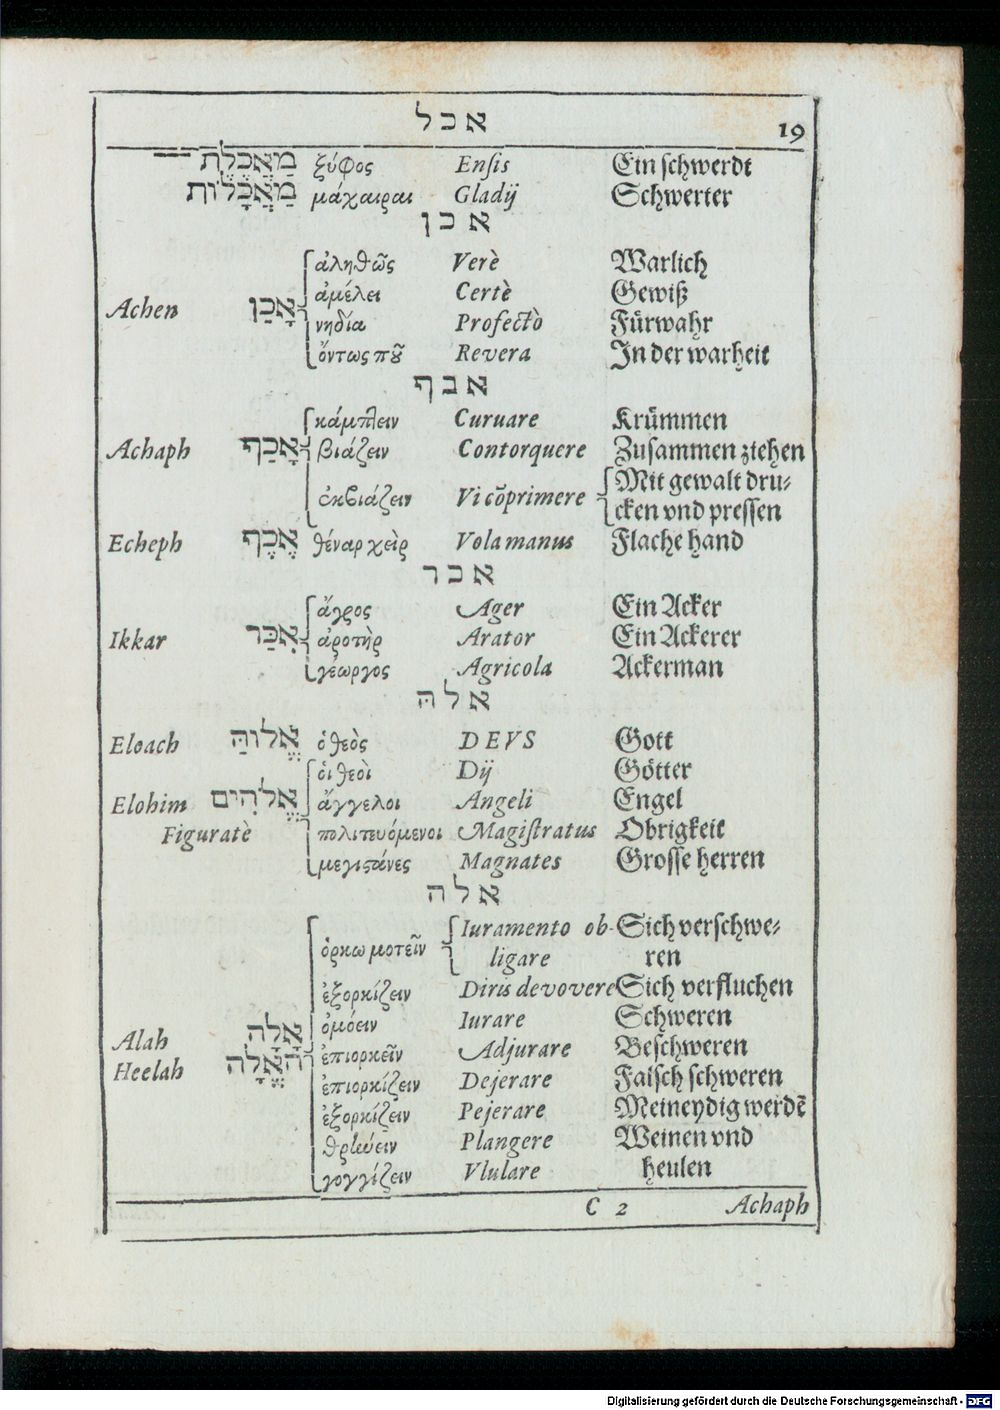 אכל 19
מַאֲכֶלֶת ξύφος Ensis Ein schwerdt
מַאֲכָלוֹת μάχαιραι Gladij Schwerter
אכן
ἀληθῶς Verè Warlich
Achen אָכַן ἀμέλει Certè Gewiß
νηδία Profectò Fürwahr
ὄντως ποῦ Revera In der warheit
אכף
κάμπτειν Curuare Krümmen
Achaph אָכַף βιάζειν Contorquere Zusammen ziehen
ἐκβιάζειν Vi cõprimere Mit gewalt dru-
cken vnd pressen
Echeph אֶכֶף θέναρ χεὶρ Vola manus Flache hand
אכר
ἄγρος Ager Ein Acker
Ikkar אִכַּר ἀροτὴρ Arator Ein Ackerer
γέωργος Agricola Ackerman
אלהּ
Eloach אֱלוֹהַּ ὁ θεὸς DEVS Gott
οἱ θεοὶ Dij Götter
Elohim אֱלֹהִים ἄγγελοι Angeli Engel
Figuratè πολιτευόμενοι Magistratus Obrigkeit
μεγιστάνες Magnates Grosse herren
אלה
ὁρκωμοτεῖν Iuramento ob- Sich verschwe-
ligare ren
ἐξορκίζειν Diris devovere Sich verfluchen
ὀμόειν Iurare Schweren
Alah אָלָה ἐπιορκεῖν Adjurare Beschweren
Heelah הֶאֱלָה ἐπιορκίζειν Dejerare Falsch schweren
ἐξορκίζειν Pejerare Meineydig werdẽ
θρηνύειν Plangere Weinen vnd
γογγίζειν Vlulare heulen
C 2 Achaph
Digitalisierung gefördert durch die Deutsche Forschungsgemeinschaft - DFG